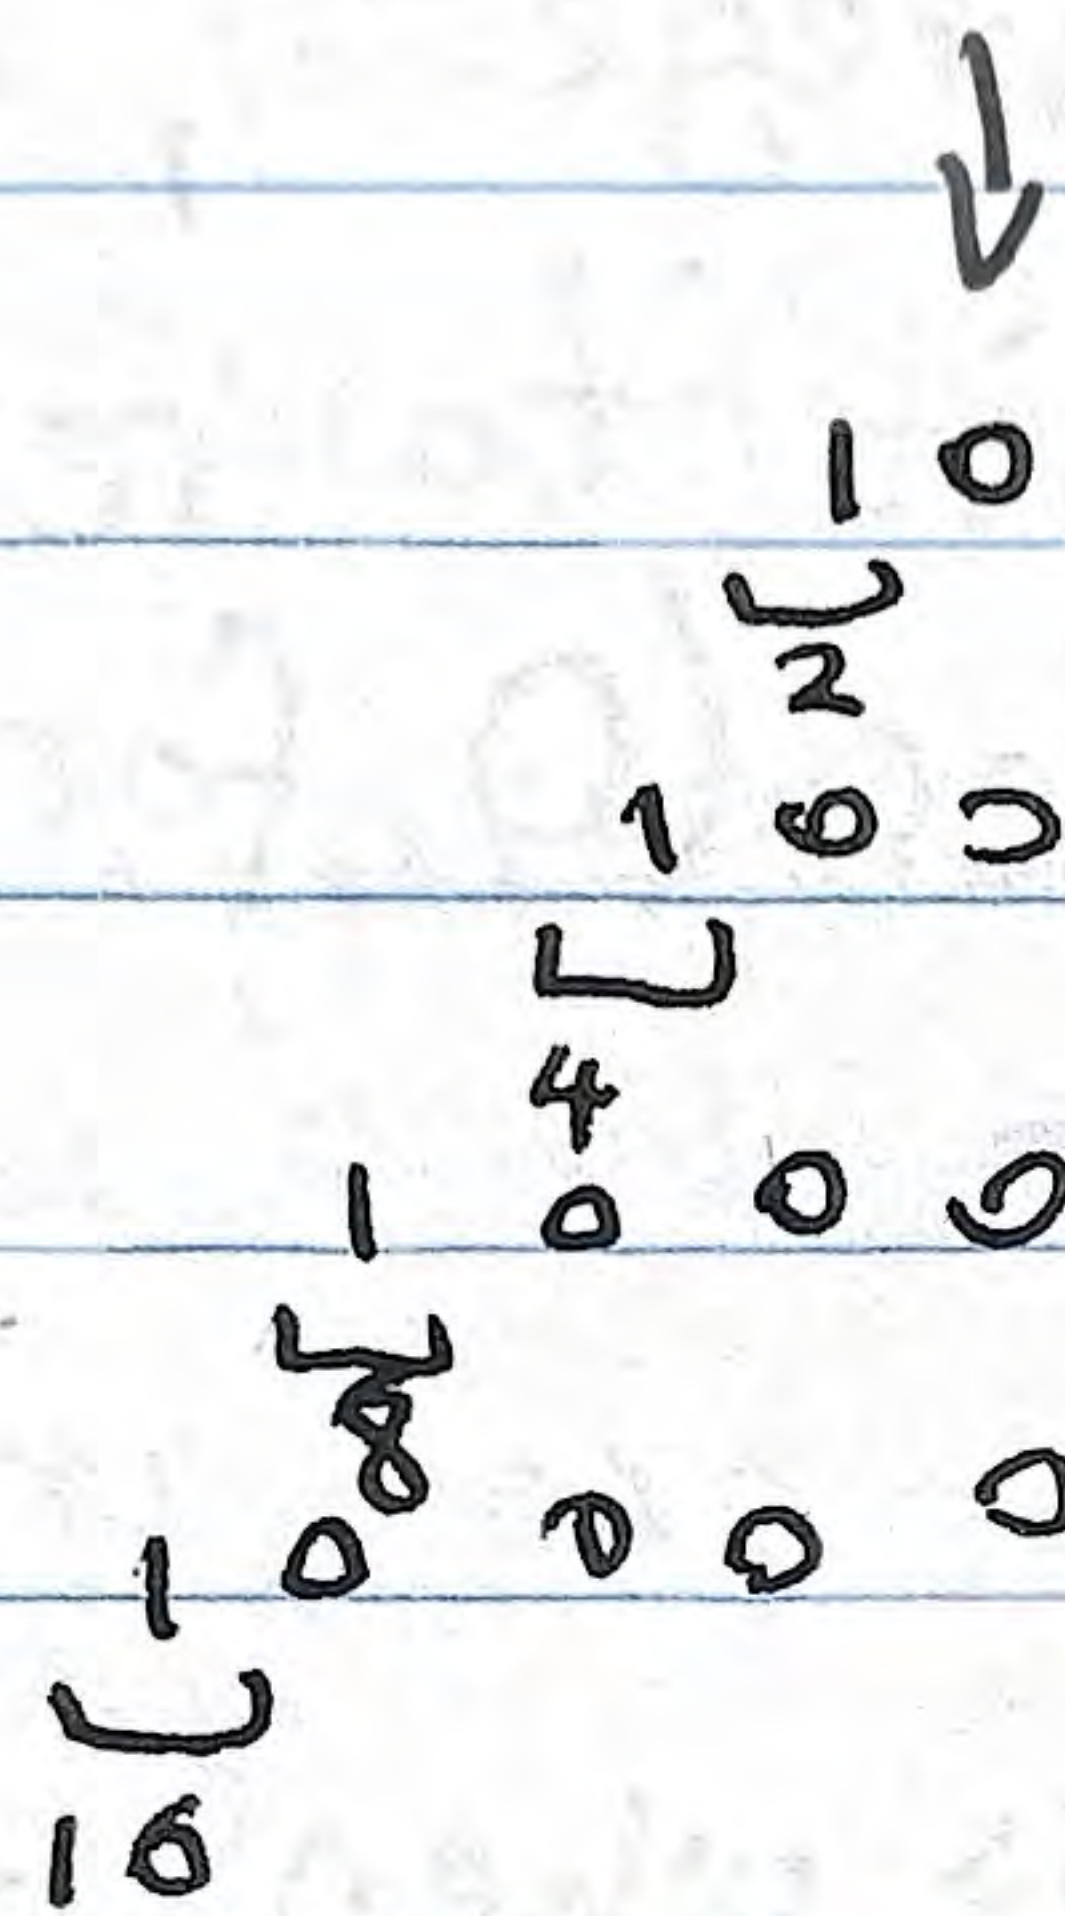 ↓
1 0
2
1 0 0
4
1 0 0 0
8
1 0 0 0 0
16